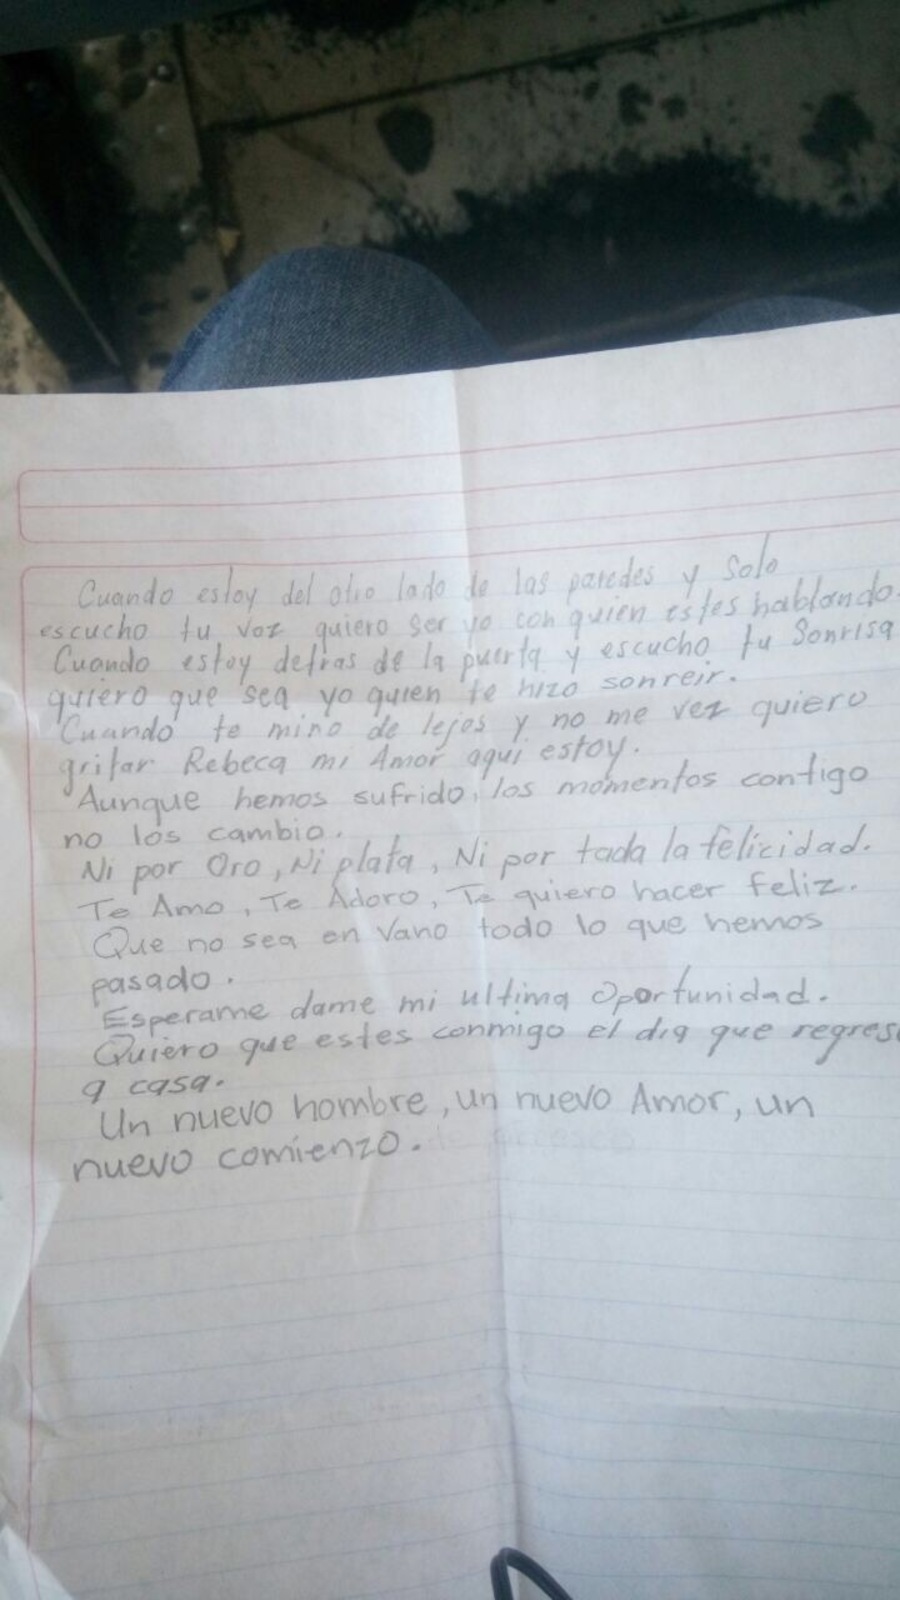 Cuando estoy del otro lado de las paredes y solo
escucho tu voz quiero ser yo con quien estes hablando.
Cuando estoy detras de la puerta y escucho tu Sonrisa
quiero que sea yo quien te hizo sonreir.
Cuando te miro de lejos y no me vez quiero
gritar Rebeca mi Amor aqui estoy.
Aunque hemos sufrido, los momentos contigo
no los cambio.
Ni por Oro, Ni plata, Ni por toda la felicidad.
Te Amo, Te Adoro, Te quiero hacer feliz.
Que no sea en Vano todo lo que hemos
pasado.
Esperame dame mi ultima oportunidad.
Quiero que estes conmigo el dia que regres
a casa.
Un nuevo hombre, un nuevo Amor, un
nuevo comienzo.